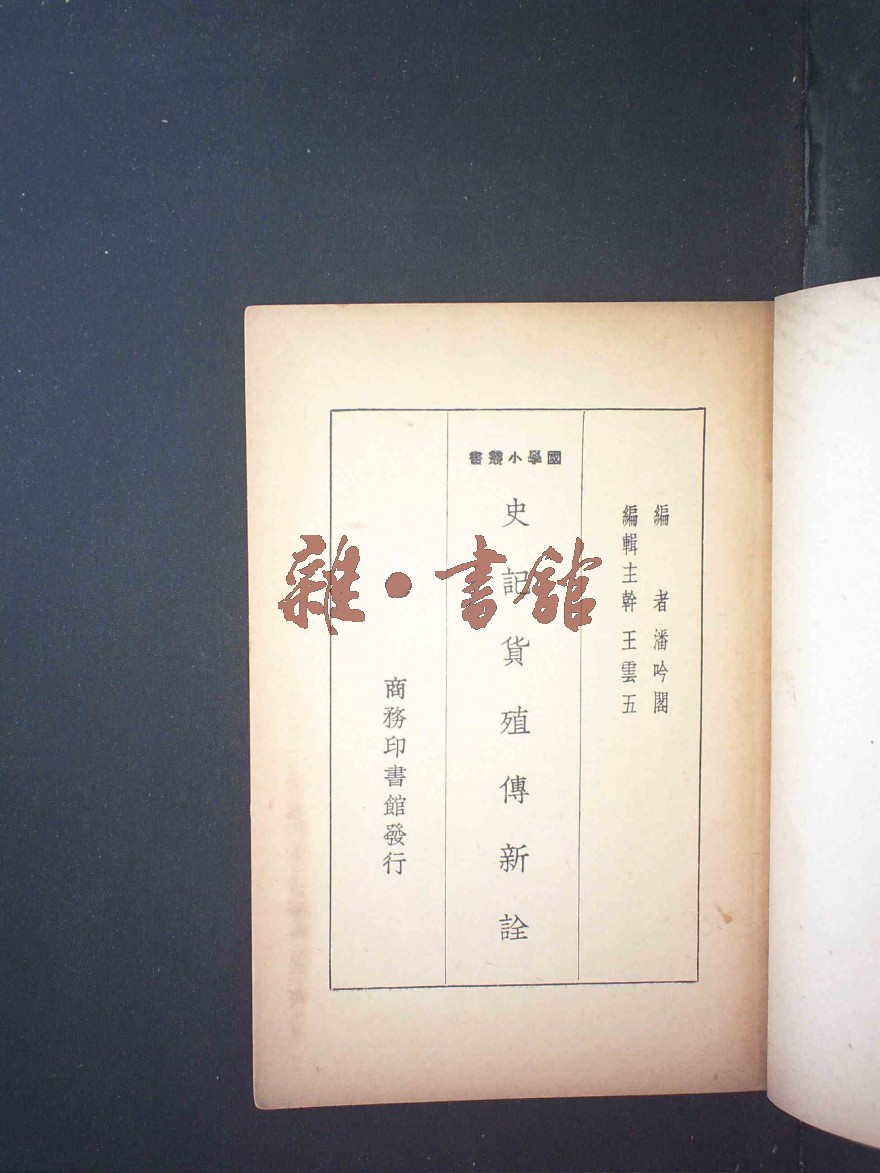 編者 潘吟閣
編輯主幹 王雲五
國學小叢書
史記貨殖傳新詮
商務印書館發行
雜·書館